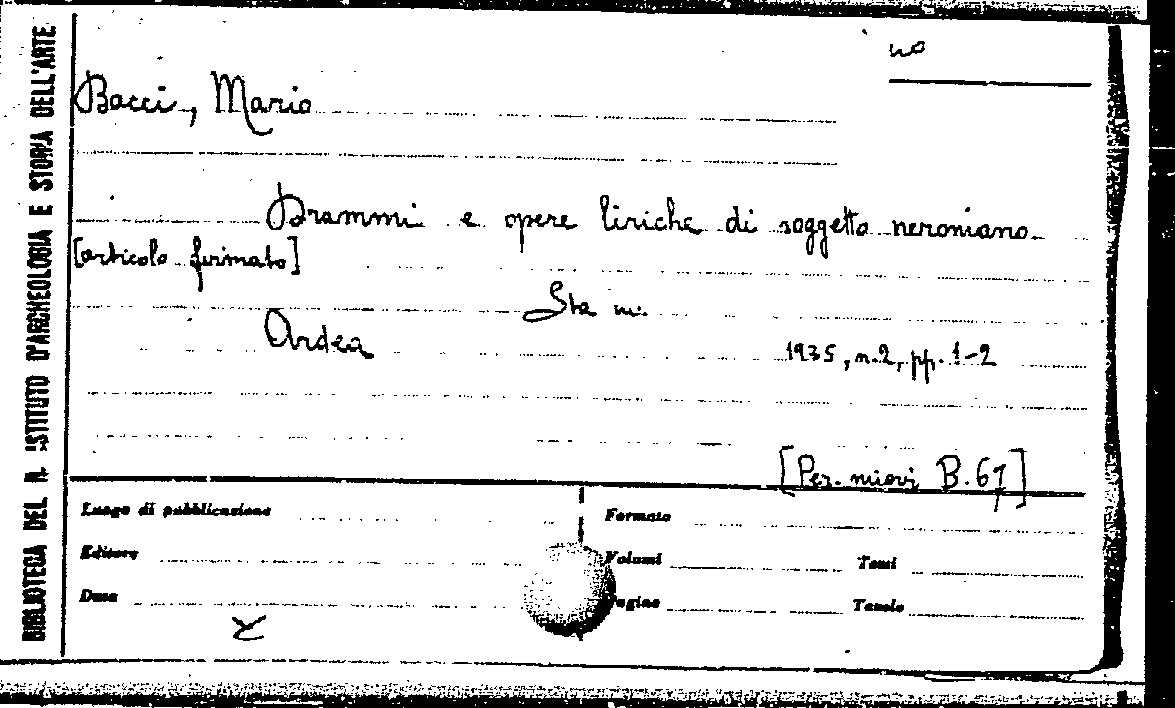 BIBLIOTECA DEL R. ISTITUTO D'ARCHEOLOGIA E STORIA DELL'ARTE
no
Bacci, Mario
Drammi e opere liriche di soggetto neroniano.
[articolo firmato]
Sta in:
Ardea 1935, n.2, pp. 1-2
[Per. nuovi B.67]
Luogo di pubblicazione
Formato
Editore
Volumi
Tomi
Data
Pagine
Tavole